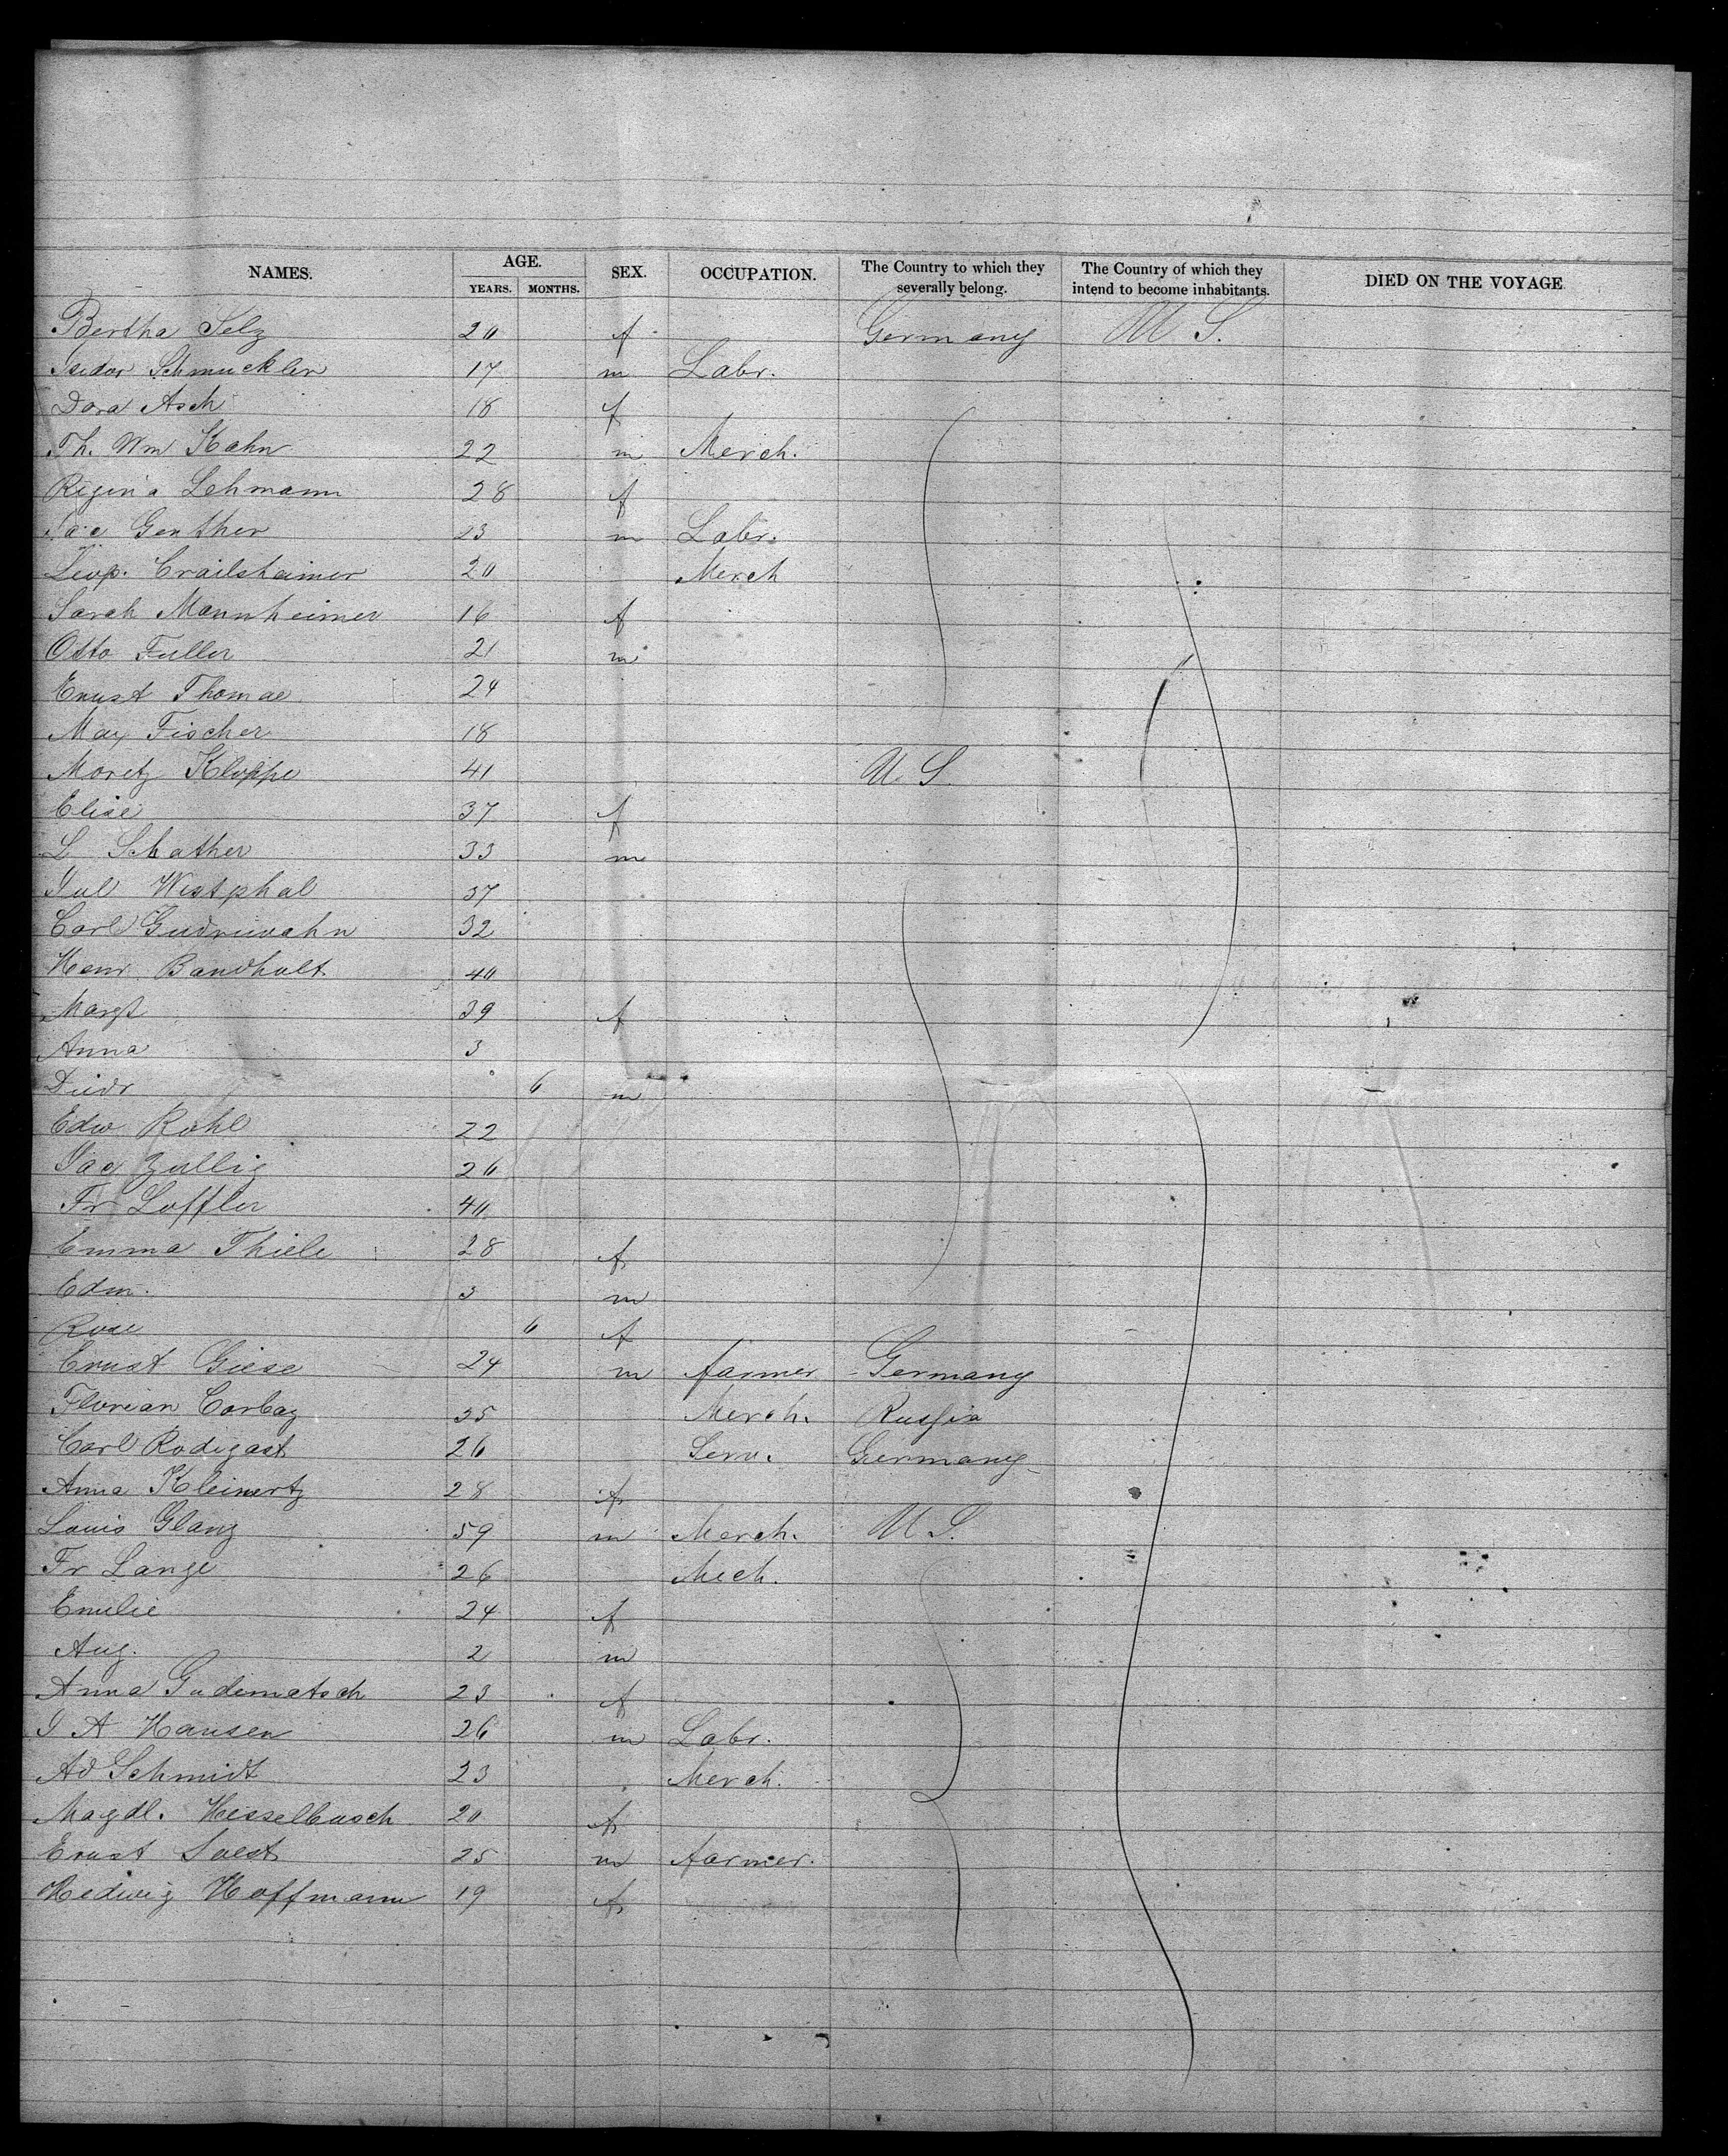 NAMES. AGE. SEX. OCCUPATION. The Country to which they severally belong. The Country of which they intend to become inhabitants. DIED ON THE VOYAGE
YEARS. MONTHS.
Bertha Selz 20 f Germany U S.
Isidor Schmuckler 17 m Labr.
Dora Asch 18 f
Th. Wm Kahn 22 m Merch.
Regina Lehmann 28 f
Jac Genther 23 m Labr.
Leop. Crailsheimer 20 Merch
Sarah Mannheimer 16 f
Otto Fuller 21 m
Ernst Thomae 24
Max Fischer 18
Moretz Kloppe 41 U S
Elise 37 f
L Schather 33 m
Jul Westphal 37
Carl 32
Henr Bandholt 40
Margt 39 f
Anna 3
Diedr 6 m
Edw Rohl 22
Jac Zullig 26
Fr Loffler 40
Emma Thiele 28 f
Edm. 3 m
Rose 6 f
Ernst Giese 24 m farmer Germany
Florian Corbaz 35 Merch. Russia
Carl Rodigast 26 Serv. Germany
Anna Kleinertz 28 f
Louis Glanz 59 m Merch. U S.
Fr Lange 26 Mech.
Emilie 24 f
Aug. 2 m
Anna Gudematsch 23 f
J A Hansen 26 m Labr.
Ad Schmidt 23 Merch.
Magdl. Hesselbasch 20 f
Ernst Soest 25 m farmer.
Hedwig Hoffmann 19 f